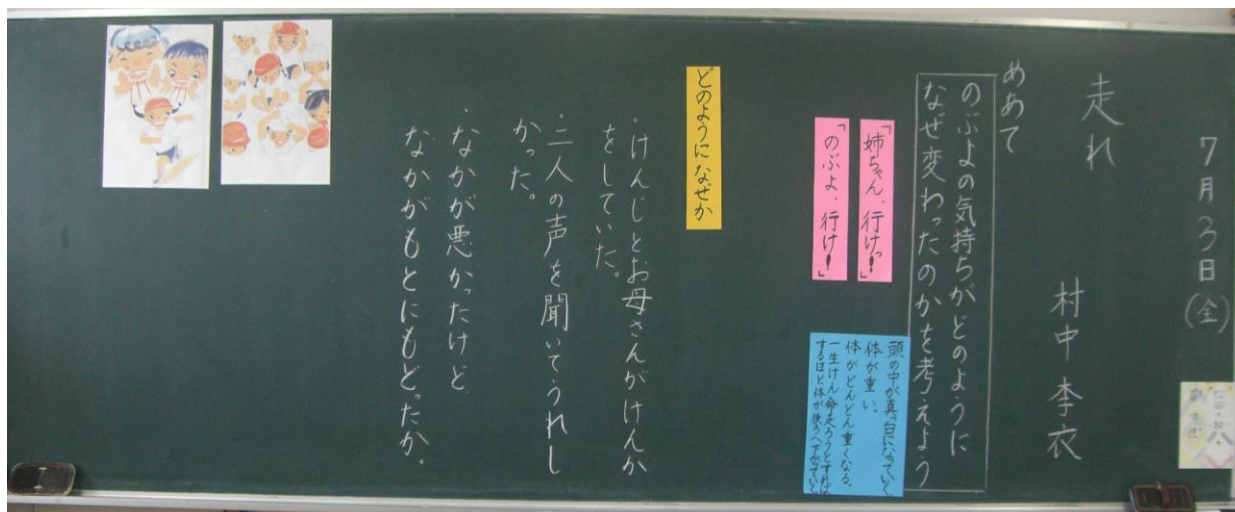 7月3日(金)
走れ
村中李衣
めあて
のぶよの気持ちがどのように
なぜ変わったのかを考えよう
「姉ちゃん、行けっ!」
「のぶよ、行け!」
頭の中が真っ白になっていく
体が重い。
体がどんどん重くなる。
一生けん命走ろうとすれば
するほど体が後ろへ下がっていく
どのようになぜか
・けんじとお母さんがけんか
をしていた。
・二人の声を聞いてうれし
かった。
・なかが悪かったけど、
なかがもとにもどったから。